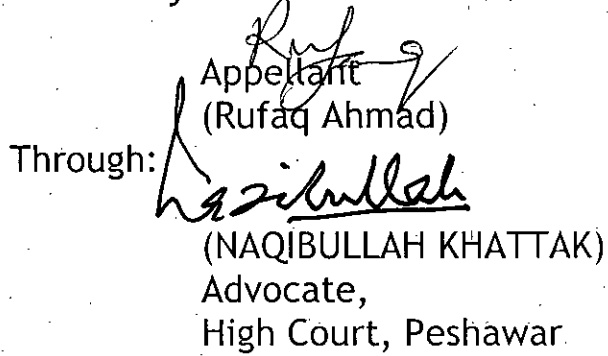 Appellant
(Rufaq Ahmad)
Through:
(NAQIBULLAH KHATTAK)
Advocate,
High Court, Peshawar